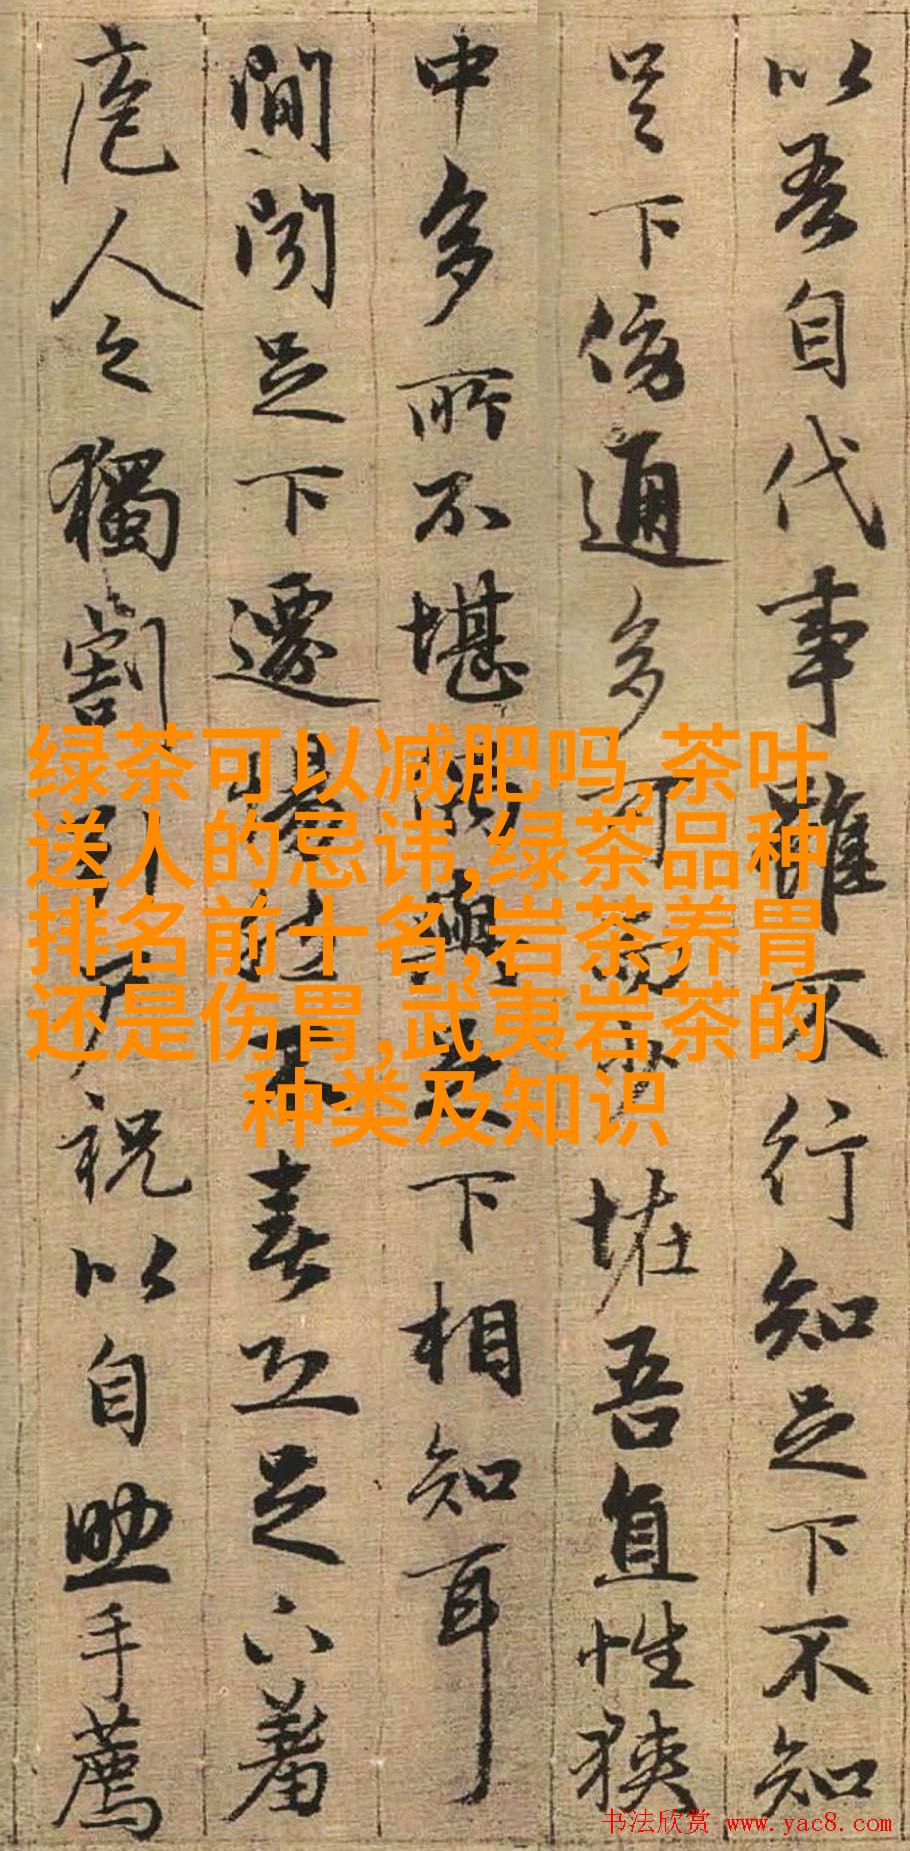 以吾自代事雖不行知足下不知
足下傍通多可而少恠吾直性狹
中多所不堪偶與足下相知耳
間聞足下遷惕然不喜恐足下羞
庖人之獨割引尸祝以自助手薦
绿茶可以减肥吗,茶叶
送人的忌讳,绿茶品种
排名前十名,岩茶养胃
还是伤胃,武夷岩茶的
种类及知识
书法欣赏 www.yac8.com